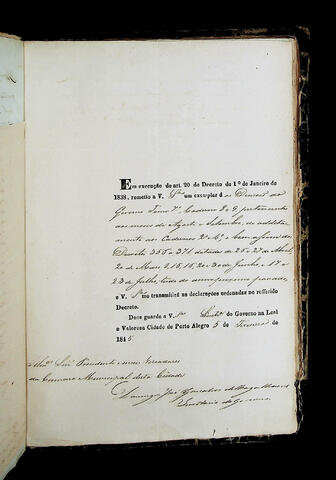 Em execução do art. 20 do Decreto do 1º de Janeiro de
1838, remetto a V. Sas um exemplar das Decisões do
Governo Tomo 7º Caderno 8 e 9 pertencentes
aos mezes de Agosto e Setembro, de additamento
aos Cadernos 2º e bem assim dos
Decretos 355 a 371 datados de 25 e 27 de Abril
20 de Maio 15, 20 e 30 de Junho e 17 e
23 de Julho, tudo do anno proximo passado,
e V. Sas me transmittirá as declarações ordenadas no refferido
Decreto.
Deos guarde a V. Sas do Governo na Leal
e Valerosa Cidade de Porto Alegre 5 de Fevereiro de
1845.
Presidente e mais Vereadores
da Camara Municipal desta Cidade
Domingos José Gonçalves de Magalhaens
Secretario do Governo